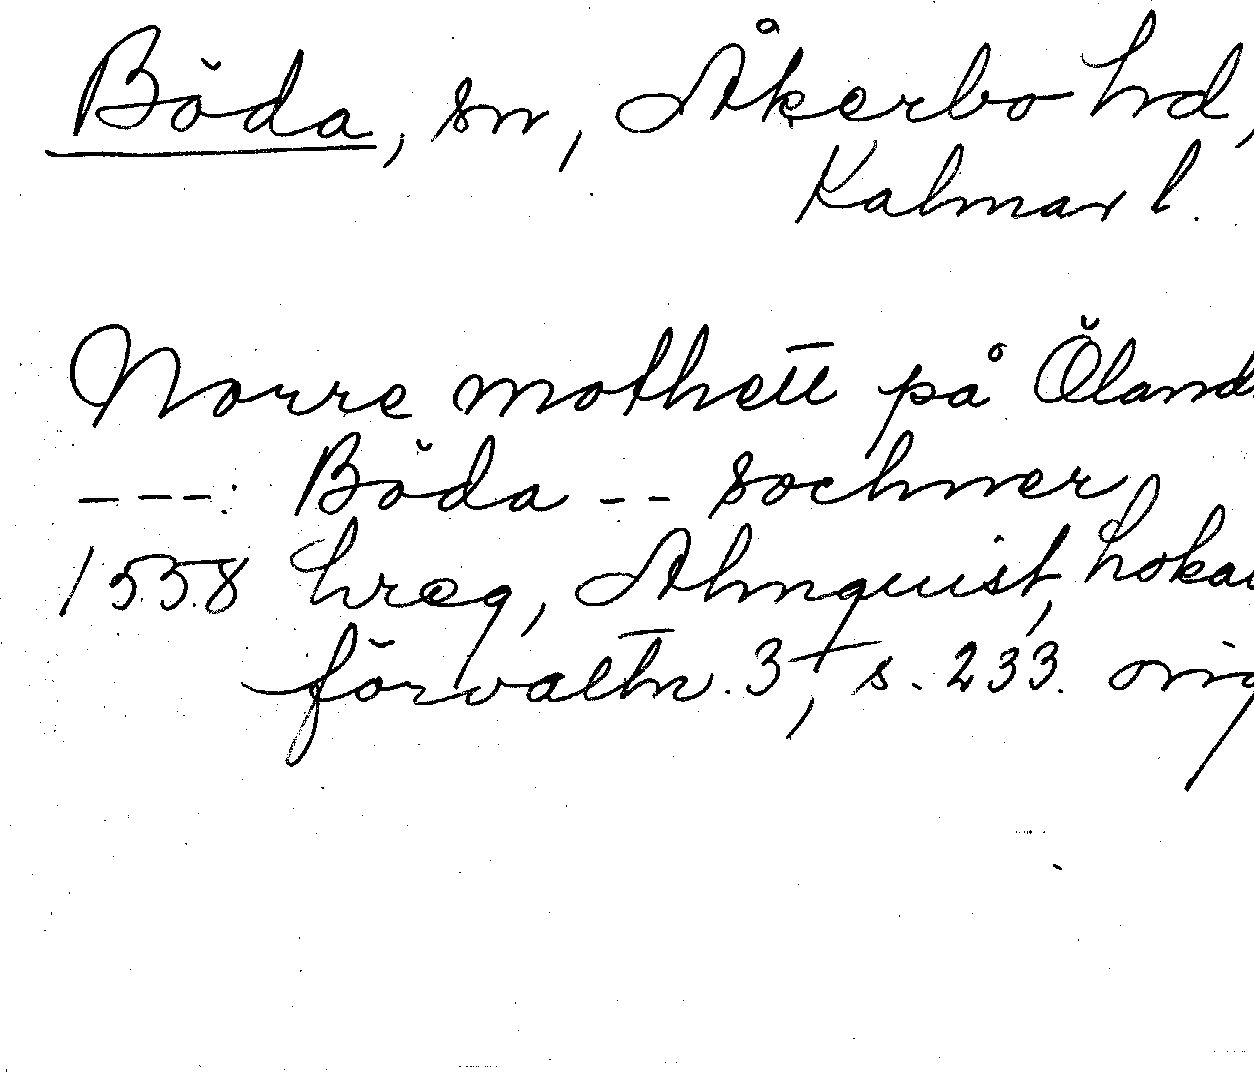 Böda, sn, Åkerbo hd,
Kalmar l.
Norre mothett på Öland
---: Böda -- sochner
1558 hreg, Almquist, lokal
förvaltn. 3, s. 233. orig